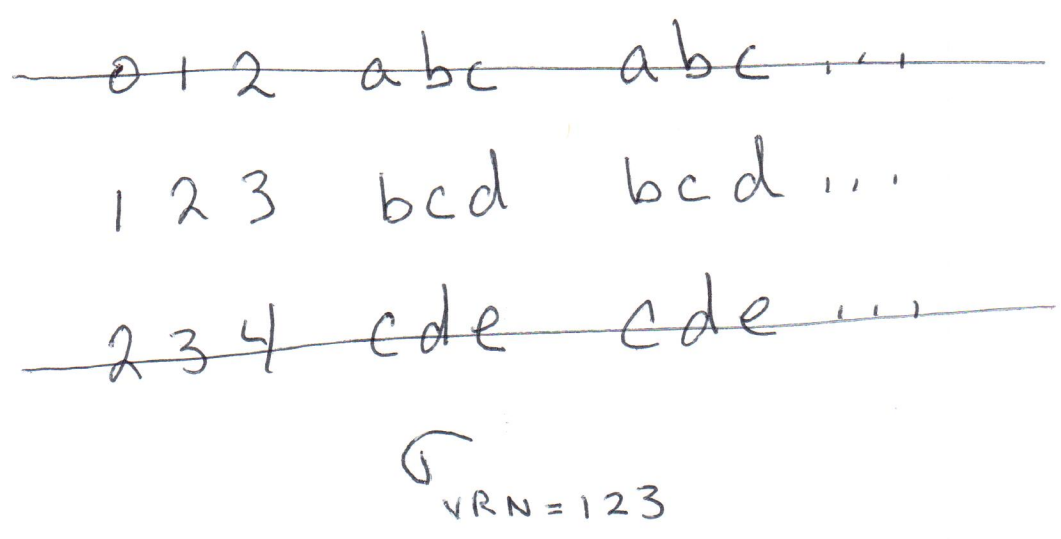 0 1 2 abc abc ...
1 2 3 bcd bcd ...
2 3 4 cde cde ...
σ VRN = 123